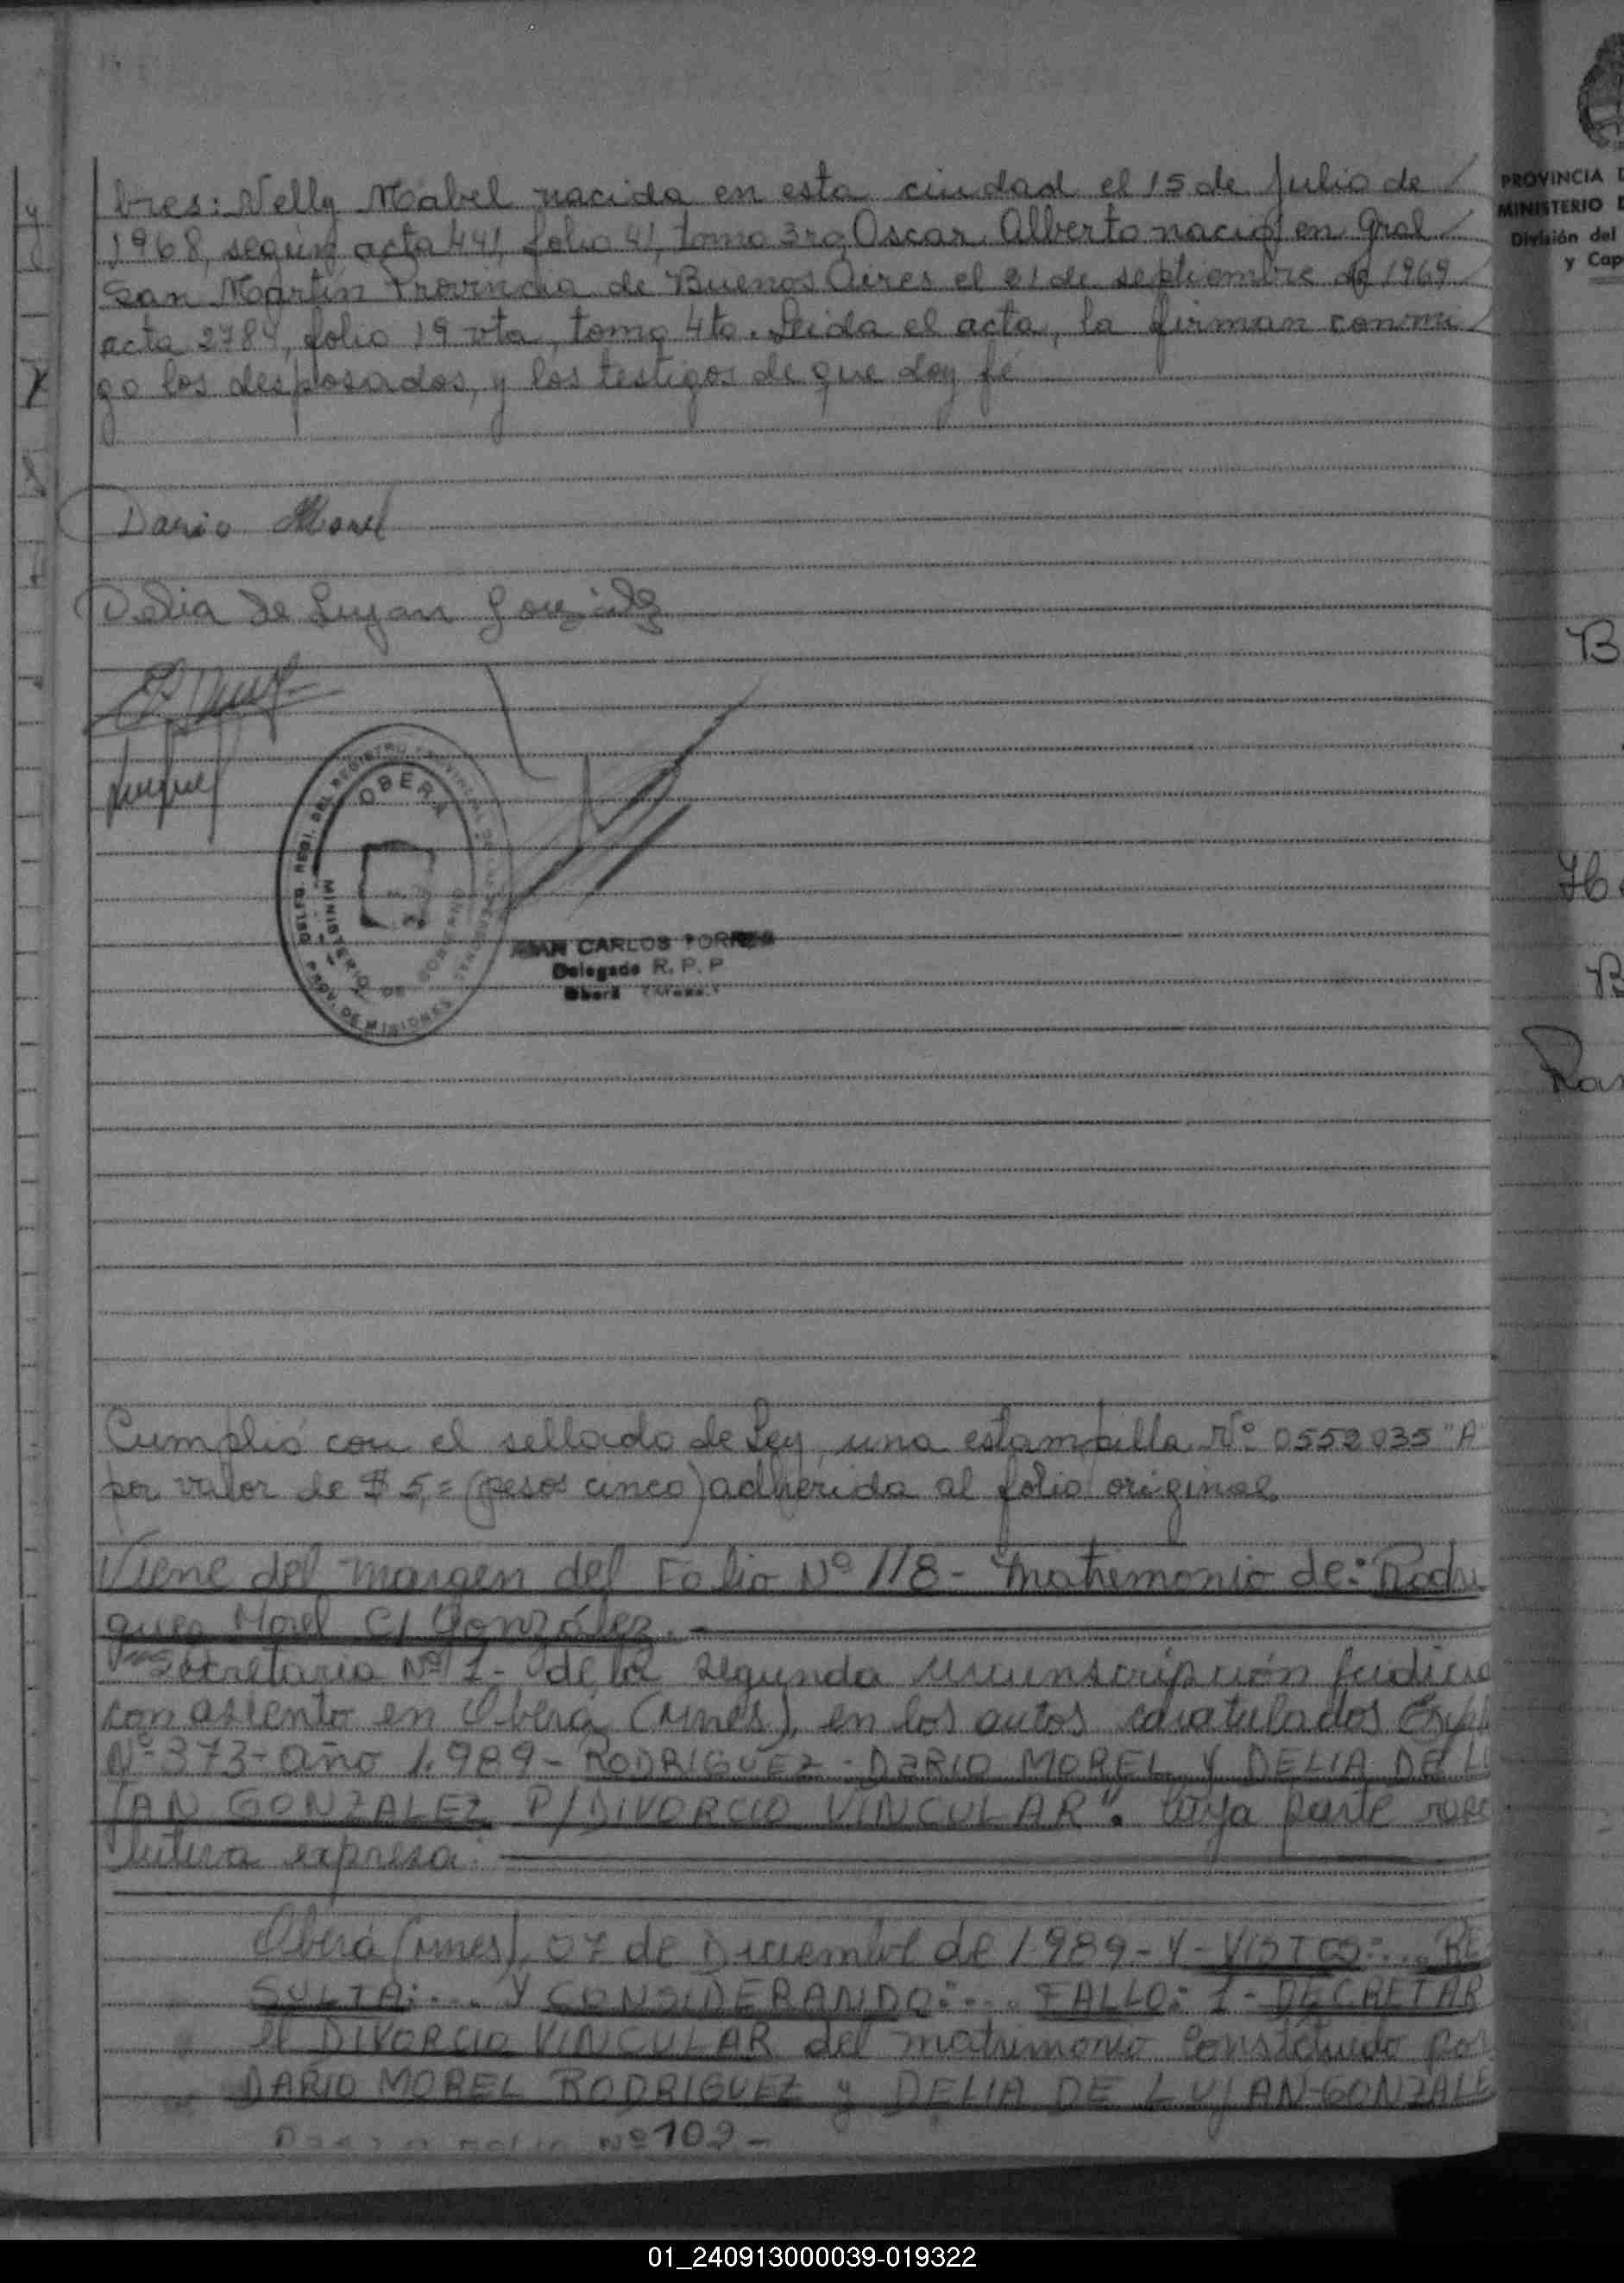 bres: Nelly Mabel nacida en esta ciudad el 15 de Julio de
1968, según acta 441, folio 41, tomo 3ro, Oscar Alberto nació en Gral
San Martín Provincia de Buenos Aires el 21 de septiembre de 1969
acta 2784, folio 19 vta, tomo 4to. Leida el acta, la firman conmi
go los desposados, y los testigos de que doy fé
Dario Morel
Delia de Lujan González
OBERA
MINISTERIO DE GOBIERNO
PROV. DE MISIONES
JUAN CARLOS TORRES
Delegado R. P. P
Oberá
Cumplió con el sellado de Ley, una estampilla Nº 0552035 "A"
por valor de $ 5,= (pesos cinco) adherida al folio original.
Viene del margen del Folio Nº 118 - Matrimonio de: Rodri
guez Morel C/ González.
Secretaria Nº 1 - de la segunda circunscripción Judicia
con asiento en Oberá (Mnes), en los autos caratulados Expte
Nº 373 - año 1.989 - RODRIGUEZ - DARIO MOREL Y DELIA DE LU
JAN GONZALEZ P/ DIVORCIO VINCULAR". Cuya parte reso
lutiva expresa:
Oberá (Mnes), 07 de Diciembre de 1.989 - Y - VISTOS:... RE
SULTA:... Y CONSIDERANDO:... FALLO: 1 - DECRETAR
el DIVORCIO VINCULAR del matrimonio constituido por
DARIO MOREL RODRIGUEZ y DELIA DE LUJAN GONZALE
Pasa a Folio Nº 109 -
PROVINCIA D
MINISTERIO D
División del
y Cap
B
B
Ram
01_240913000039-019322